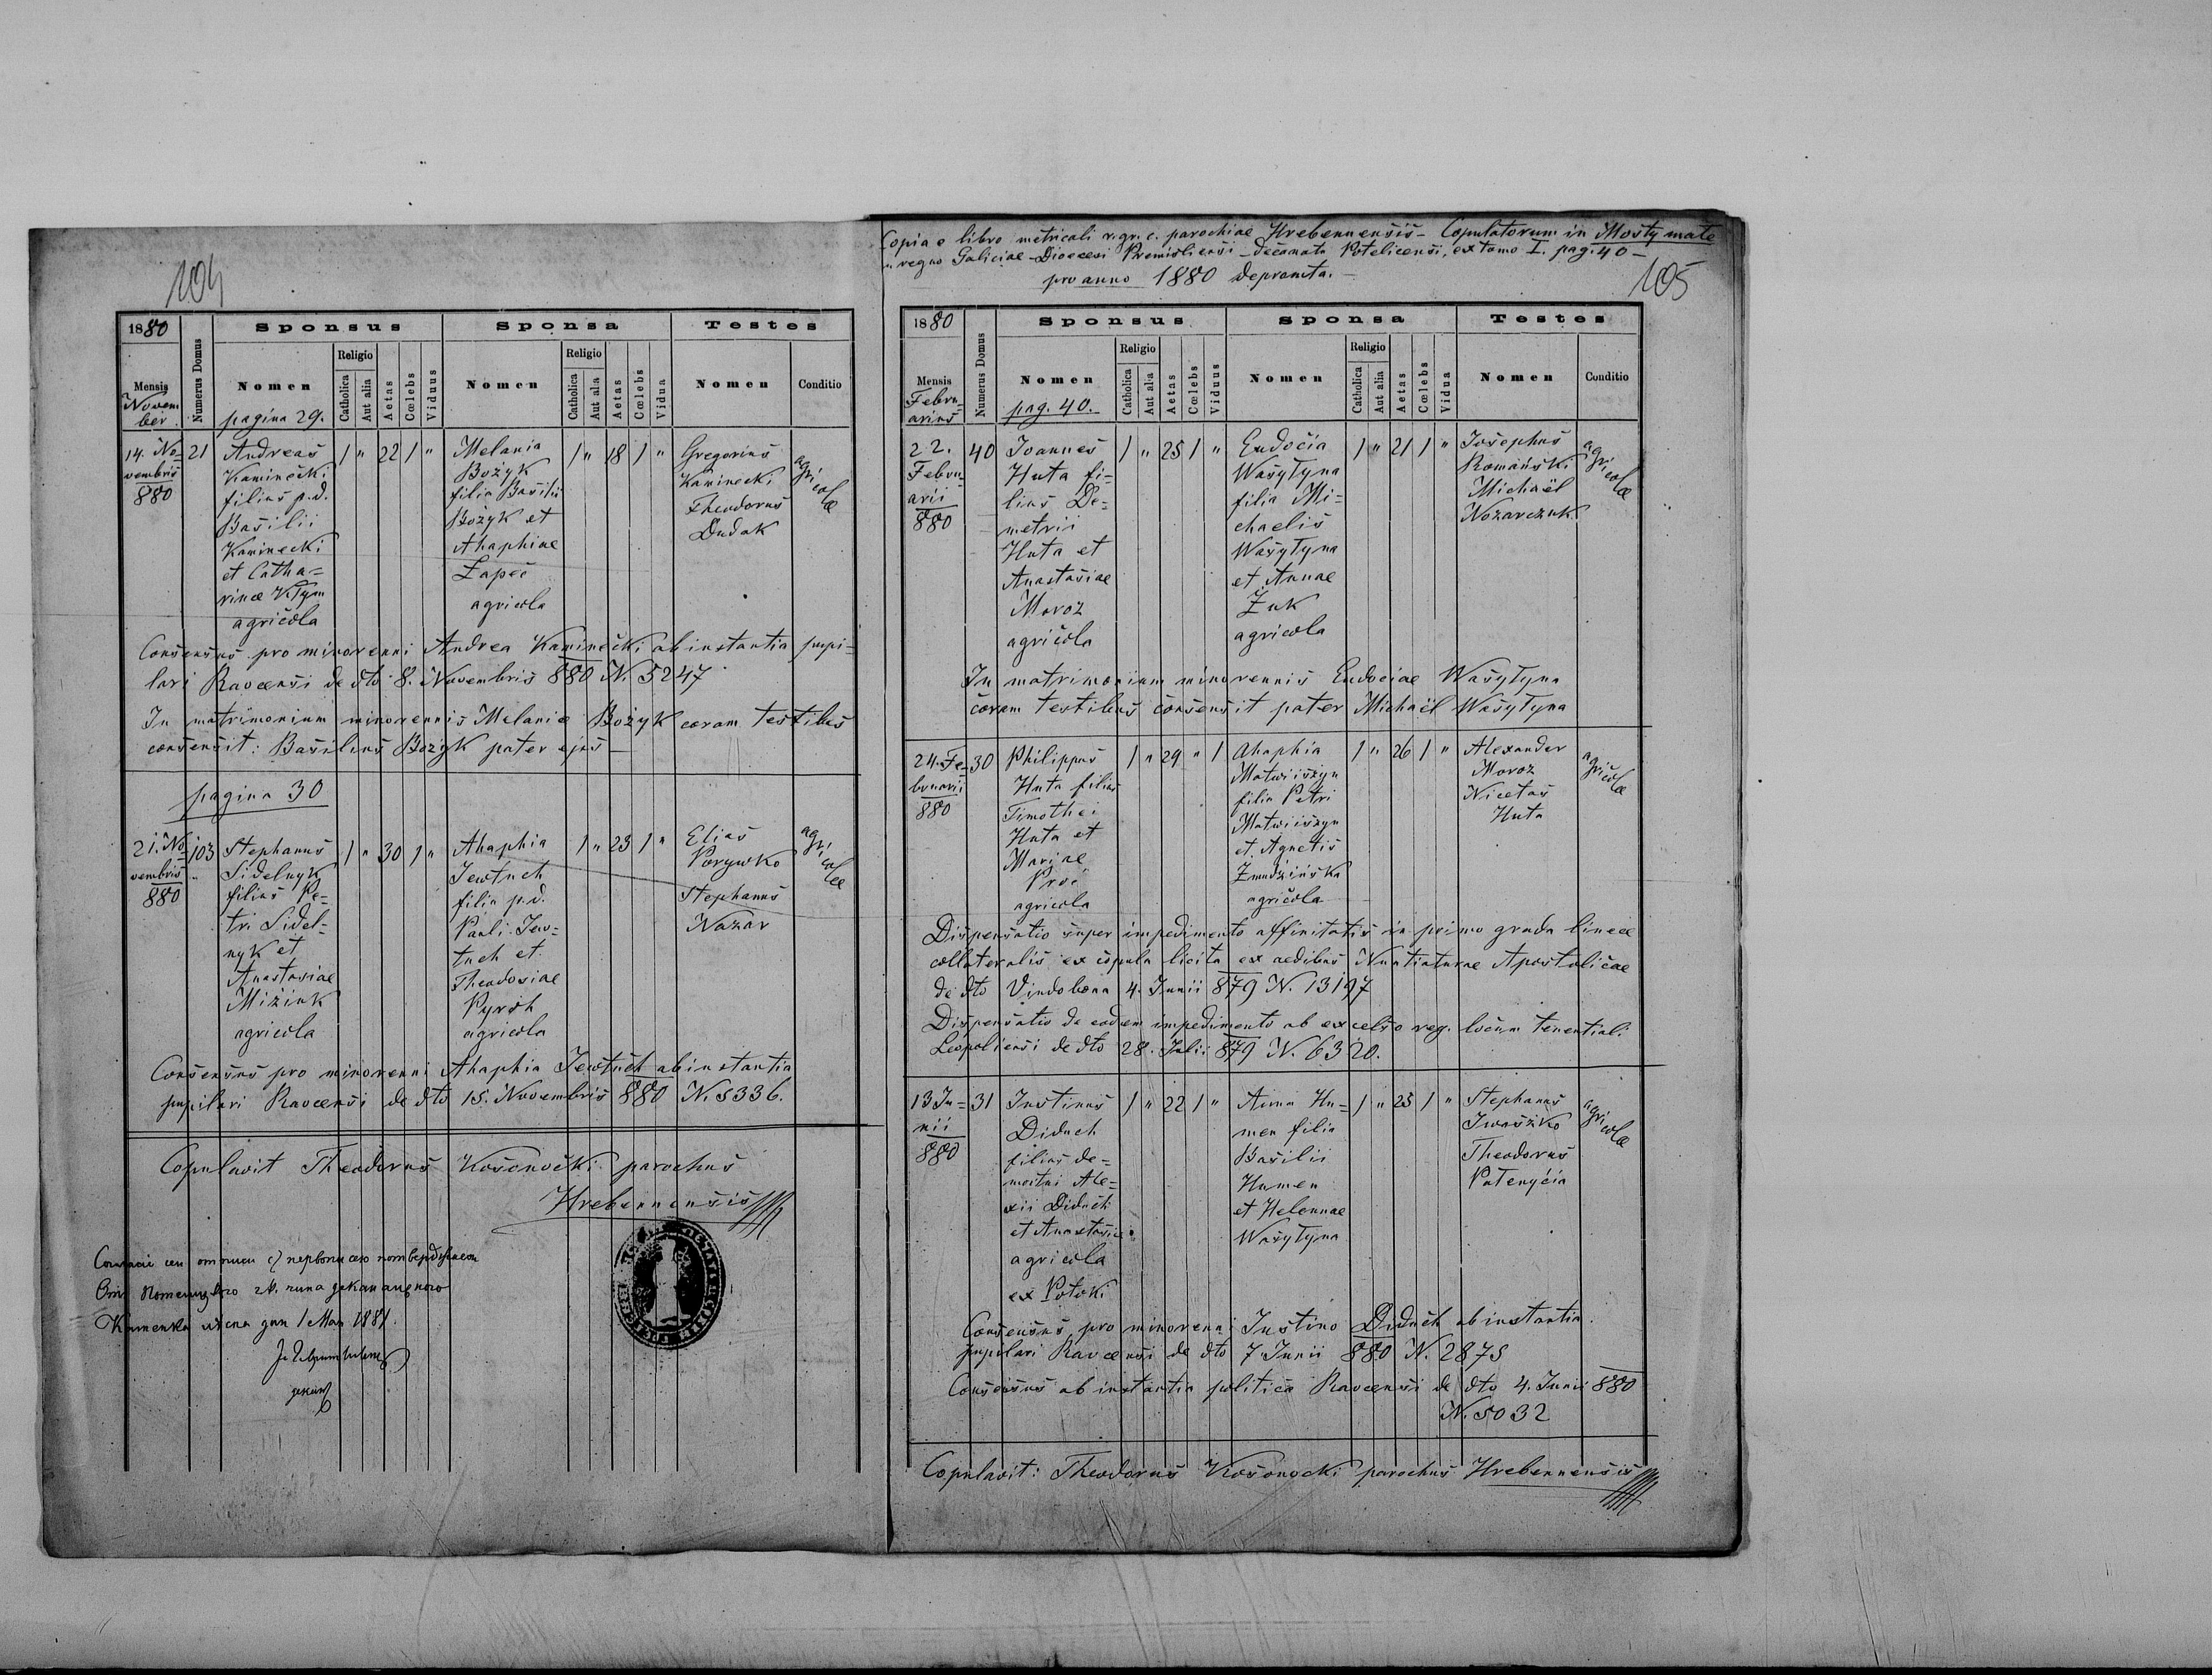 104
1880
Sponsus
Sponsa
Testes
Mensis
Numerus Domus
Nomen
Religio
Catholica
Aut alia
Aetas
Cœlebs
Viduus
Nomen
Religio
Catholica
Aut alia
Aetas
Cœlebs
Vidua
Nomen
Conditio
Novem
ber
pagina 29.
14. No=
vembris
880
21
Andreas
Kaminecki
filius p.d.
Basilii
Kaminecki
et Catha=
rinae
agricola
1 " 22 1 "
Melania
Bożyk
filia Basilii
Bożyk et
Ahaphiae
Łapec
agricola
1 " 18 1 "
Gregorius
Kaminecki
Theodorus
Dudak
agri
colae
Consensus pro minorenni Andrea Kaminecki ab instantia pupi=
lari Raveensi de dto 8. Novembris 880 N. 5247
In matrimonium minorennis Melanie Bożyk coram testibus
consensit: Basilius Bożyk pater ejus
pagina 30
21. No
vembris
880
103
Stephanus
Sidelnyk
filius Pe=
tri Sidel=
nyk et
Anastasiae
Miziuk
agricola
1 " 30 1 "
Ahaphia
Jewtuch
filia p.d.
Pauli Jew=
tuch et
Theodosiae
Pyroh
agricola
1 " 23 1 "
Elias
Porywko
Stephanus
Nazar
agri
colae
Consensus pro minorenni Ahaphia Jewtuch ab instantia
pupilari Raveensi de dto 15. Novembris 880 N. 5336.
Copulavit Theodorus Kosonocki parochus
Hrebennensis
1 1881.
Copia e libro metricali r. gr. c. parochiae Hrebennensis - Copulatorum in Mosty małe
regno Galiciae - Dioecesi Premisliensi - Decanatu Potelicensi, ex tomo I. pag. 40 -
pro anno 1880 depromta. -
105
1880
Sponsus
Sponsa
Testes
Mensis
Numerus Domus
Nomen
Religio
Catholica
Aut alia
Aetas
Cœlebs
Viduus
Nomen
Religio
Catholica
Aut alia
Aetas
Cœlebs
Vidua
Nomen
Conditio
Febru=
arius
pag. 40.
22.
Febru=
arii
880
40
Joannes
Huta fi=
lius De=
metrii
Huta et
Anastasiae
Moroz
agricola
1 " 25 1 "
Eudocia
Wasyłyna
filia Mi=
chaelis
Wasyłyna
et Annae
Żuk
agricola
1 " 21 1 "
Josephus
Romański
Michaël
Nozarczuk
agri
colae
In matrimonium minorennis Eudociae Wasyłyna
coram testibus consensit pater Michaël Wasyłyna
24. Fe=
bruarii
880
30
Philippus
Huta filius
Timothei
Huta et
Mariae
Proć
agricola
1 " 29 " 1
Ahaphia
Matwiiszyn
filia Petri
Matwiiszyn
et Agnetis
Żmudzińska
agricola
1 " 26 1 "
Alexander
Moroz
Nicetas
Huta
agricolae
Dispensatio super impedimento affinitatis in primo gradu lineae
collateralis ex copula licita ex aedibus Nuntiaturae Apostolicae
de dto Vindobona 4. Junii 879 N. 13197
Dispensatio de eodem impedimento ab excelso reg. locum tenentiali
Leopoliensi de dto 28. Julii 879 N. 6320.
13 Ju=
nii
880
31
Justinus
Diduch
filius de=
mortui Ale=
xii Diduch
et Anastasiae
agricola
ex Potoki
1 " 22 1 "
Anna Hu=
men filia
Basilii
Humen
et Helennae
Wasyłyna
1 " 23 1 "
Stephanus
Iwaszko
Theodorus
Patenycia
agri
colae
Consensus pro minorenni Justino Diduch ab instantia
pupilari Raveensi de dto 7 Junii 880 N. 2875
Consensus ab instantia politica Raveensi de dto 4. Junii 880
N. 5032
Copulavit: Theodorus Kosonocki parochus Hrebennensis